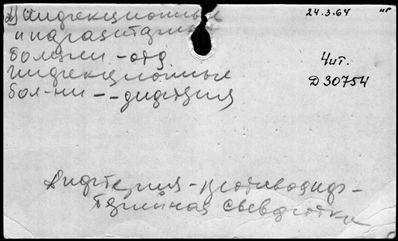 24.3.64
инфекционные
и паразитарные
болезни - отд.
Чит.
инфекционные
Д 30754
бол-ни -- дифтерия
Дифтерия - противодиф-
терийная сыворотка